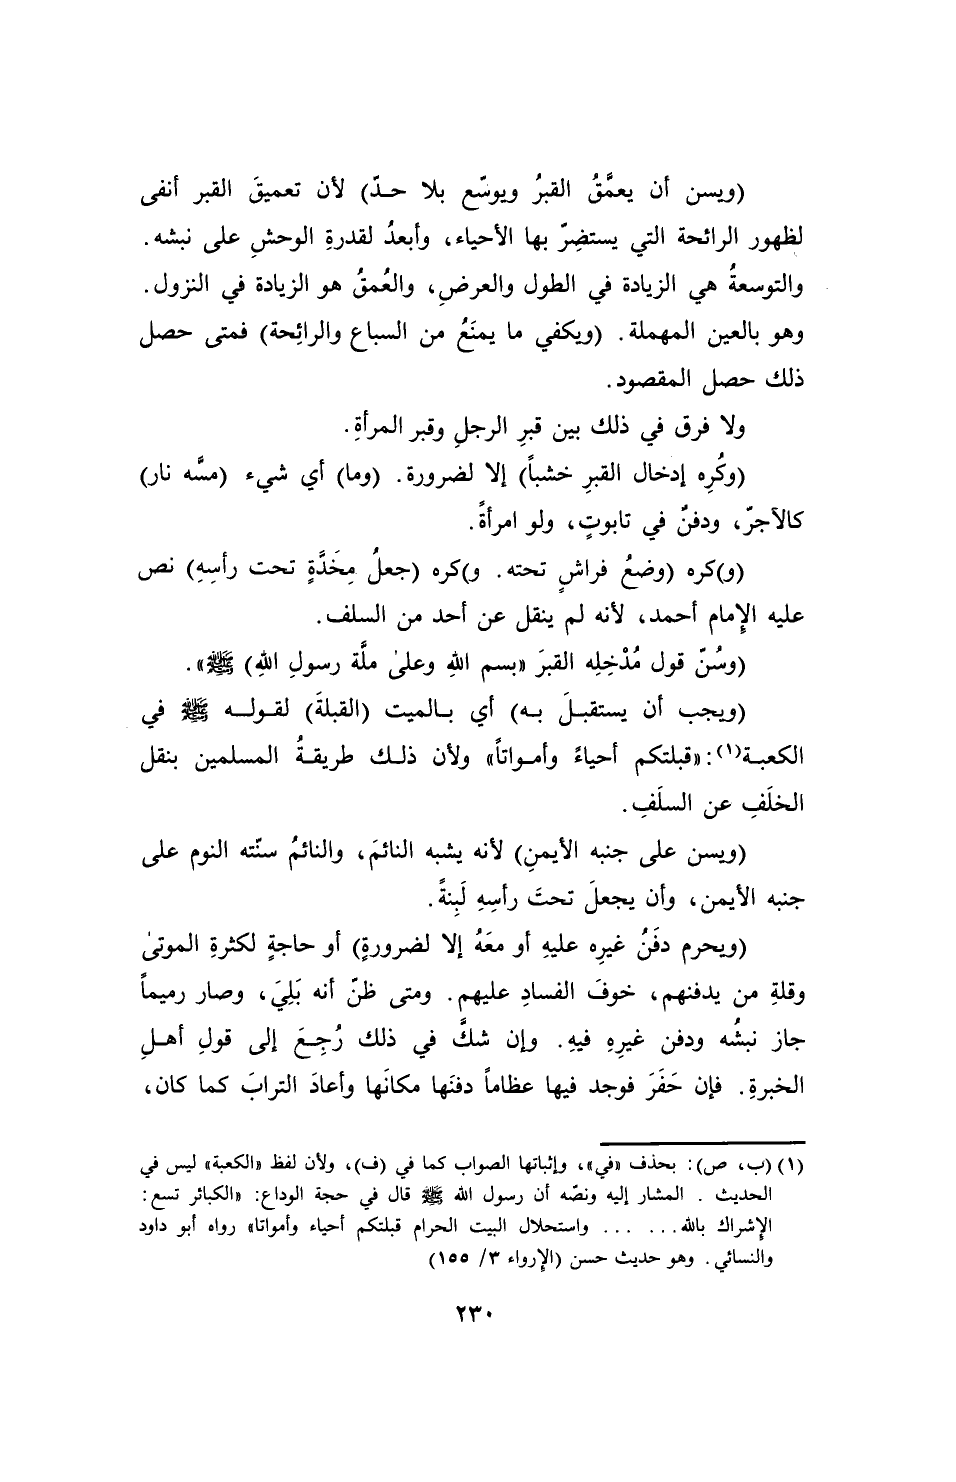 (ويسن أن يعمَّقُ القبرُ ويوسّع بلا حـدّ) لأن تعميقَ القبر أنفى
لظهور الرائحة التي يستضِرّ بها الأحياء، وأبعدُ لقدرةِ الوحشِ على نبشه.
والتوسعةُ هي الزيادة في الطول والعرضِ، والعُمقُ هو الزيادة في النزول.
وهو بالعين المهملة. (ويكفي ما يمنَعُ من السباع والرائِحة) فمتى حصل
ذلك حصل المقصود.
ولا فرق في ذلك بين قبرِ الرجلِ وقبر المرأةِ.
(وكُرِه إدخال القبرِ خشباً) إلا لضرورة. (وما) أي شيء (مسَّه نار)
كالآجرّ، ودفنٌ في تابوتٍ، ولو امرأةً.
(و)كره (وضعُ فراشٍ تحته. و)كره (جعلُ مِخَدَّةٍ تحت رأسِهِ) نص
عليه الإِمام أحمد، لأنه لم ينقل عن أحد من السلف.
(وسُنّ قول مُدْخِلِه القبرَ «بسم اللهِ وعلىٰ ملَّة رسولِ اللهِ) ﷺ».
(ويجب أن يستقبـلَ بـه) أي بـالميت (القبلةَ) لقـولـه ﷺ في
الكعبـة(١): «قبلتكم أحياءً وأمـواتاً» ولأن ذلـك طريقـةُ المسلمين بنقل
الخلَفِ عن السلَفِ.
(ويسن على جنبه الأيمنِ) لأنه يشبه النائمَ، والنائمُ سنّته النوم على
جنبه الأيمن، وأن يجعلَ تحتَ رأسِهِ لَبِنةً.
(ويحرم دفَنُ غيرِه عليهِ أو معَهُ إلا لضرورةٍ) أو حاجةٍ لكثرةِ الموتىٰ
وقلةِ من يدفنهم، خوفَ الفسادِ عليهم. ومتى ظنّ أنه بَلِيَ، وصار رميماً
جاز نبشُه ودفن غيرِهِ فيهِ. وإن شكَّ في ذلك رُجِـعَ إلى قولِ أهـلِ
الخبرةِ. فإن حَفَرَ فوجد فيها عظاماً دفنَها مكانَها وأعادَ الترابَ كما كان،
(١) (ب، ص): بحذف «في»، وإثباتها الصواب كما في (ف)، ولأن لفظ «الكعبة» ليس في
الحديث . المشار إليه ونصّه أن رسول الله ﷺ قال في حجة الوداع: «الكبائر تسع:
الإِشراك بالله... ... واستحلال البيت الحرام قبلتكم أحياء وأمواتا» رواه أبو داود
والنسائي. وهو حديث حسن (الإِرواء ٣/ ١٥٥)
٢٣٠